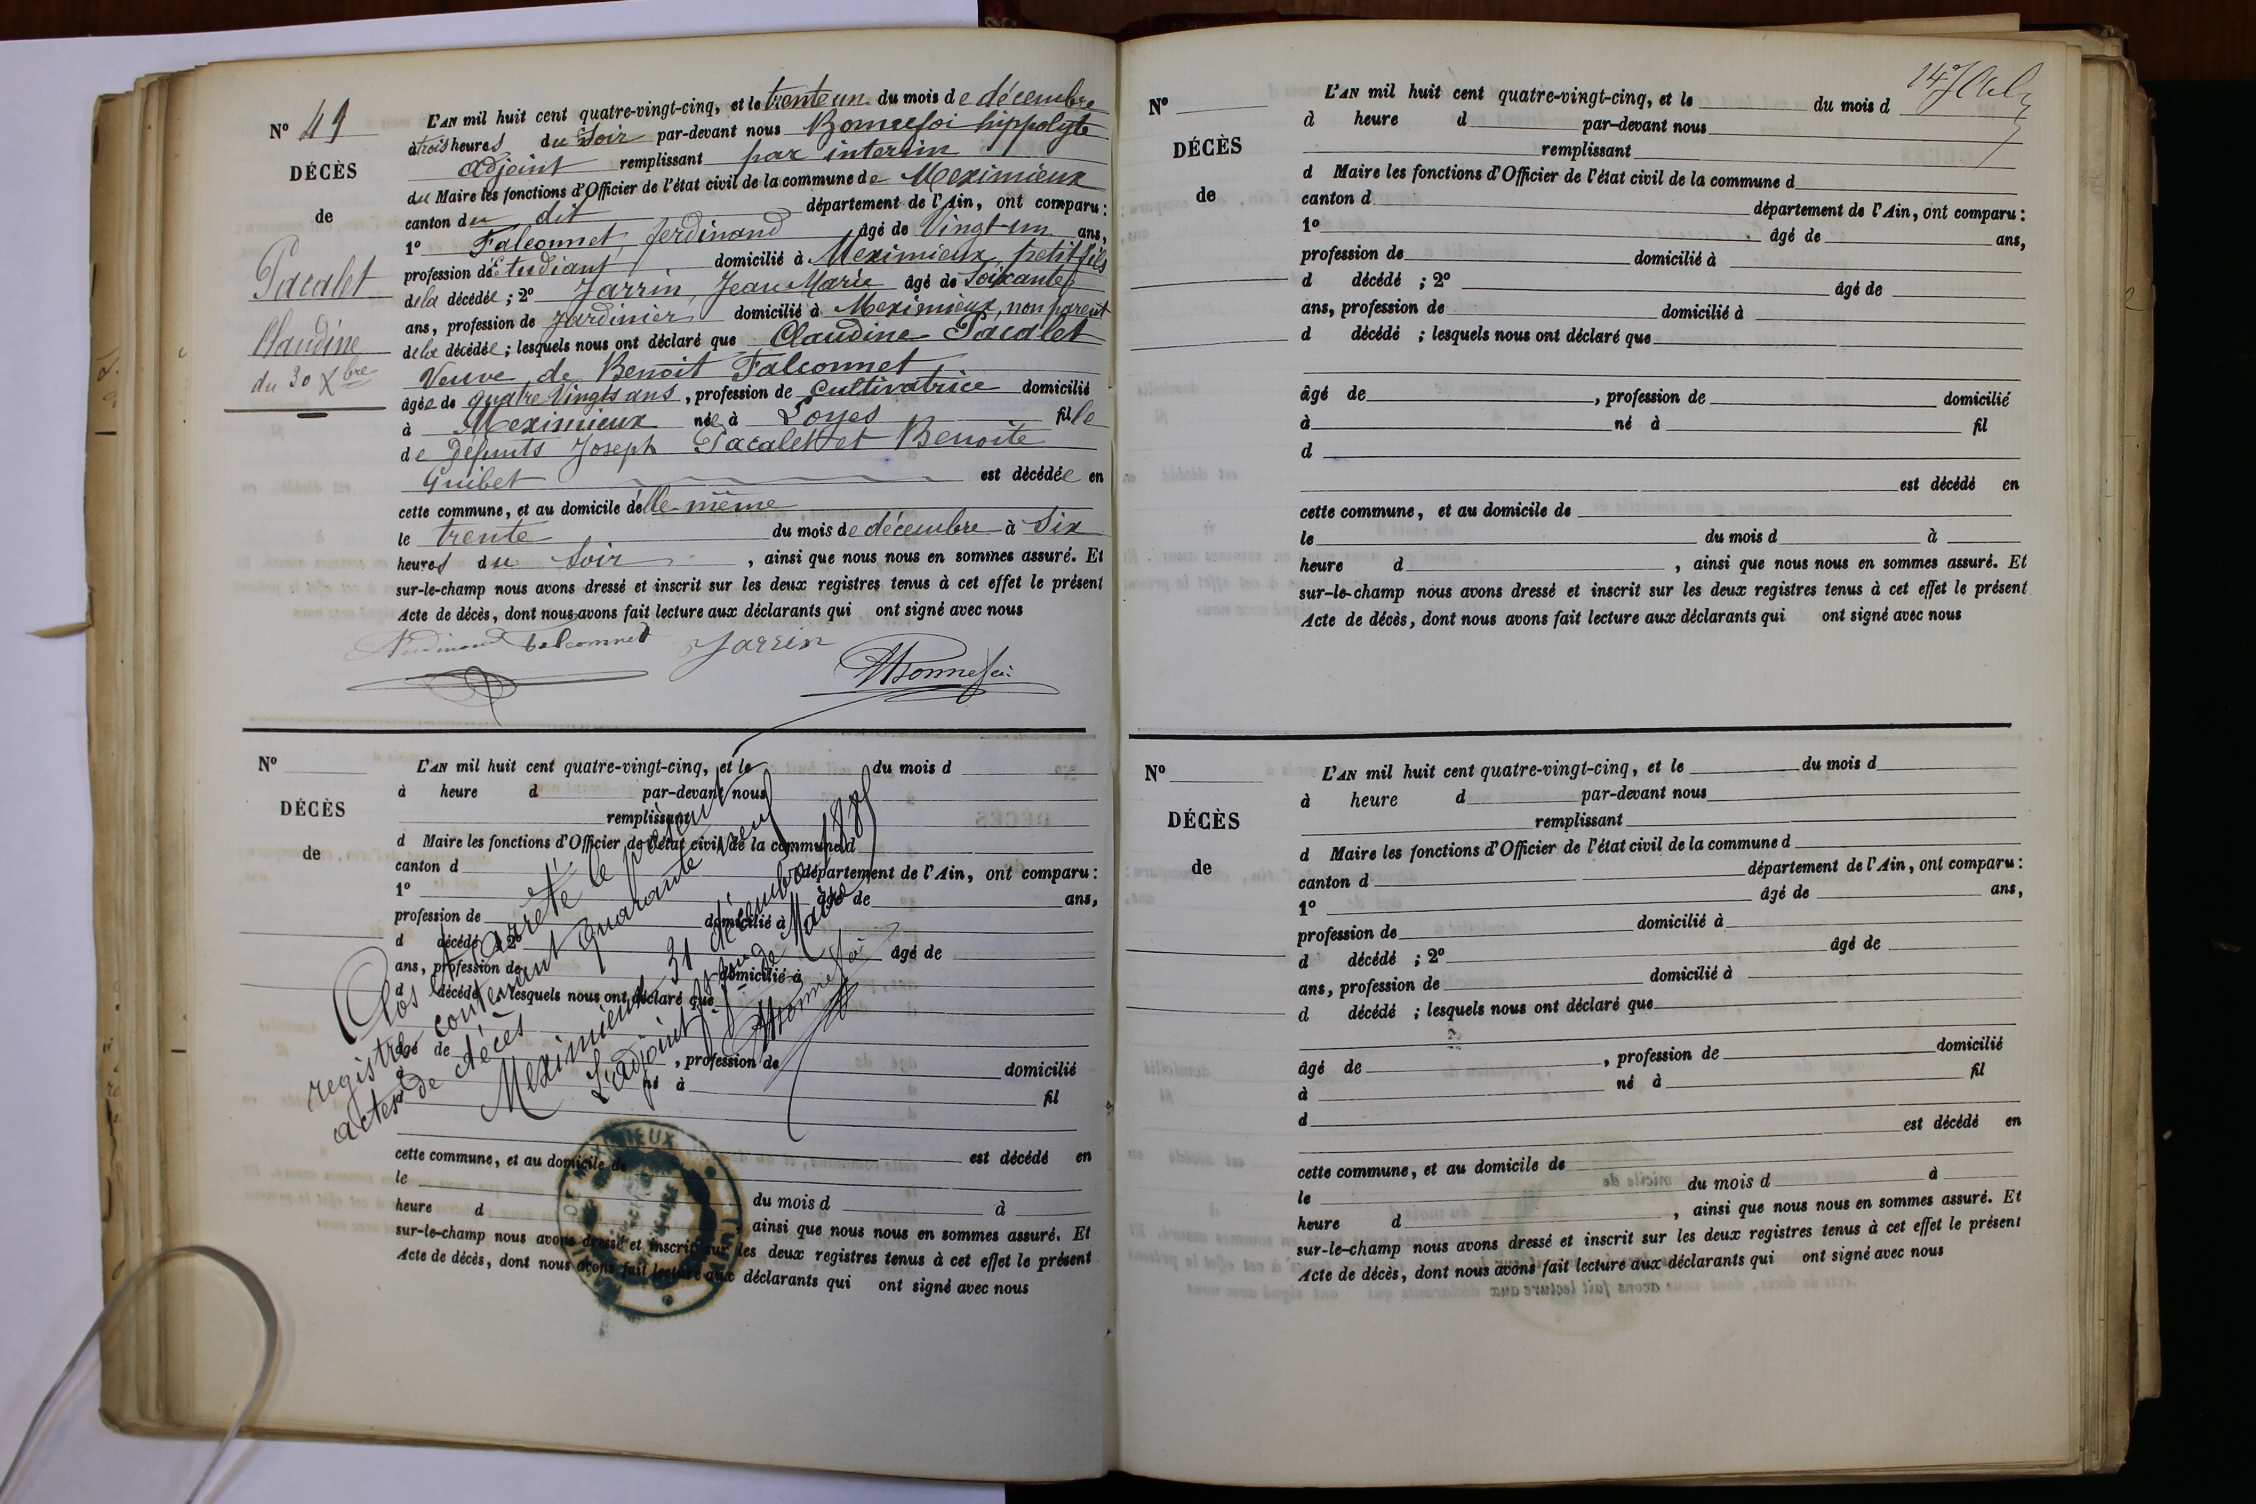 N° 49
DÉCÈS
de
Pacalet
Claudine
du 30 Xbre
L'AN mil huit cent quatre-vingt-cinq, et le trente un du mois de décembre
à trois heures du Soir par-devant nous Bonnefoi hippolyte
Adjoint remplissant par interim
du Maire les fonctions d'Officier de l'état civil de la commune de Meximieux
canton du dit département de l'Ain, ont comparu :
1° Falconnet, ferdinand âgé de Vingt-un ans,
profession d'Etudiant domicilié à Meximieux, petit fils
de la décédée ; 2° Jarrin, Jean Marie âgé de Soixante
ans, profession de Jardinier domicilié à Meximieux, non parent
de la décédée ; lesquels nous ont déclaré que Claudine Pacalet
Veuve de Benoit Falconnet
âgée de quatre Vingts ans, profession de Cultivatrice domicilié
à Meximieux née à Loyes fille
de Défunts Joseph Pacalet et Benoite
Guibet est décédée en
cette commune, et au domicile d'elle-même
le trente du mois de décembre à Six
heures du Soir, ainsi que nous nous en sommes assuré. Et
sur-le-champ nous avons dressé et inscrit sur les deux registres tenus à cet effet le présent
Acte de décès, dont nous avons fait lecture aux déclarants qui ont signé avec nous
Ferdinand Falconnet Jarrin HBonnefoi
N°
DÉCÈS
de
L'AN mil huit cent quatre-vingt-cinq, et le du mois d
à heure d par-devant nous
remplissant
d Maire les fonctions d'Officier de l'état civil de la commune d
canton d département de l'Ain, ont comparu :
1° âgé de ans,
profession de domicilié à
d décédé ; 2° âgé de
ans, profession de domicilié à
d décédé ; lesquels nous ont déclaré que
âgé de , profession de domicilié
à né à fil
d
est décédé en
cette commune, et au domicile de
le du mois d à
heure d ainsi que nous nous en sommes assuré. Et
sur-le-champ nous avons dressé et inscrit sur les deux registres tenus à cet effet le présent
Acte de décès, dont nous avons fait lecture aux déclarants qui ont signé avec nous
Clos et arrêté le présent
registre contenant quarante neuf
actes de décès
Meximieux 31 décembre 1885
L'adjoint f. f. de Maire
HBonnefoi
MAIRIE DE MEXIMIEUX
N°
DÉCÈS
de
L'AN mil huit cent quatre-vingt-cinq, et le du mois d
à heure d par-devant nous
remplissant
d Maire les fonctions d'Officier de l'état civil de la commune d
canton d département de l'Ain, ont comparu :
1° âgé de ans,
profession de domicilié à
d décédé ; 2° âgé de
ans, profession de domicilié à
d décédé ; lesquels nous ont déclaré que
âgé de , profession de domicilié
à né à fil
d
est décédé en
cette commune, et au domicile de
le du mois d à
heure d , ainsi que nous nous en sommes assuré. Et
sur-le-champ nous avons dressé et inscrit sur les deux registres tenus à cet effet le présent
Acte de décès, dont nous avons fait lecture aux déclarants qui ont signé avec nous
N°
DÉCÈS
de
L'AN mil huit cent quatre-vingt-cinq, et le du mois d
à heure d par-devant nous
remplissant
d Maire les fonctions d'Officier de l'état civil de la commune d
canton d département de l'Ain, ont comparu :
1° âgé de ans,
profession de domicilié à
d décédé ; 2° âgé de
ans, profession de domicilié à
d décédé ; lesquels nous ont déclaré que
âgé de , profession de domicilié
à né à fil
d
est décédé en
cette commune, et au domicile de
le du mois d à
heure d , ainsi que nous nous en sommes assuré. Et
sur-le-champ nous avons dressé et inscrit sur les deux registres tenus à cet effet le présent
Acte de décès, dont nous avons fait lecture aux déclarants qui ont signé avec nous